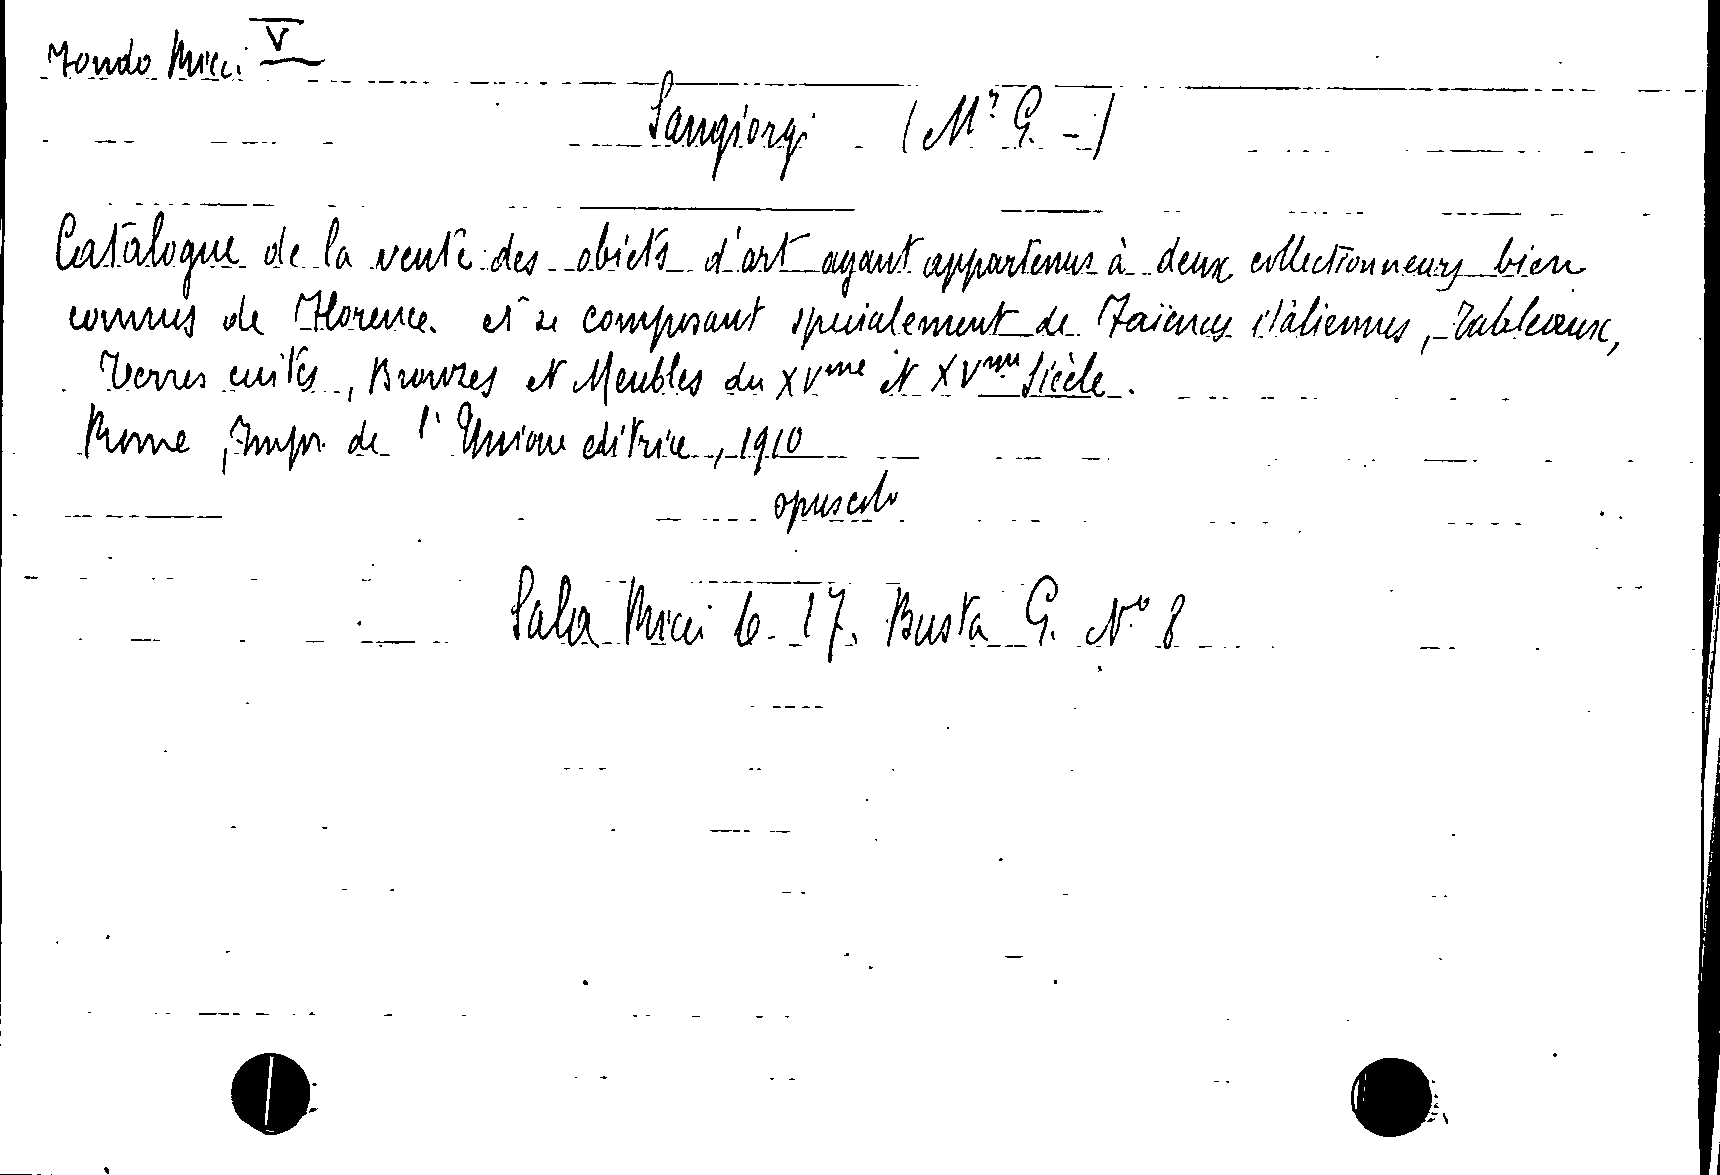 Fondo Ricci V
Sangiorgi (Mr G. -)
Catalogue de la vente des objets d'art ayant appartenus à deux collectionneurs bien
connus de Florence. et se composant specialement de Faïences italiennes, Tableaux,
Terres cuites, Bronzes et Meubles du XVme et XVme Siècle.
Rome, Impr. de l'Unione editrice, 1910
opuscolo
Sala Ricci 6. 17. Busta G. No 8